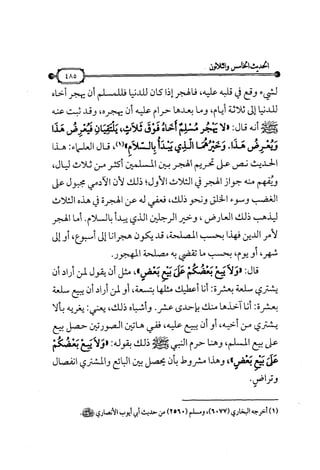 الحديث الخامس والثلاثون
٤٨٥
لشيء وقع في قلبه عليه، فالهجر إذا كان للدنيا فللمسلم أن يهجر أخاه
للدنيا إلى ثلاثة أيام، وما بعدها حرام عليه أن يهجره، وقد ثبت عنه
ﷺ أنه قال: «لا يَهْجُر مُسْلِمٌ أَخَاهُ فَوْقَ ثَلَاثٍ، يَلْتَقِيَانِ فَيُعْرِضُ هَذَا
وَيُعْرِضُ هَذَا. وَخَيْرُهُمَا الَّذِي يَبْدَأُ بِالسَّلَامِ»(١)، قال العلماء: هذا
الحديث نص على تحريم الهجر بين المسلمين أكثر من ثلاث ليال،
ويُفهم منه جواز الهجر في الثلاث الأول؛ ذلك لأن الآدمي مجبول على
الغضب وسوء الخلق ونحو ذلك، فعفي له عن الهجرة في هذه الثلاث
ليذهب ذلك العارض، وخير الرجلين الذي يبدأ بالسلام. أما الهجر
لأمر الدين فهذا بحسب المصلحة، قد يكون هجرانا إلى أسبوع، أو إلى
شهر، أو يوم، بحسب ما تقضي به مصلحة المهجور.
قال: «وَلَا يَبِعْ بَعْضُكُمْ عَلَى بَيْعِ بَعْضٍ»، مثل أن يقول لمن أراد أن
يشتري سلعة بعشرة: أنا أعطيك مثلها بتسعة، أو لمن أراد أن يبيع سلعة
بعشرة: أنا آخذها منك بإحدى عشر. وأشباه ذلك، يعني: يغريه بألا
يشتري من أخيه، أو أن يبيع عليه، ففي هاتين الصورتين حصل بيع
على بيع المسلم، وهنا حرم النبي ﷺ ذلك بقوله: «وَلَا يَبِعْ بَعْضُكُمْ
عَلَى بَيْعِ بَعْضٍ»، وهذا مشروط بأن يحصل بين البائع والمشتري انفصال
وتراضٍ.
(١) أخرجه البخاري (٦٠٧٧)، ومسلم (٢٥٦٠) من حديث أبي أيوب الأنصاري ﵁.